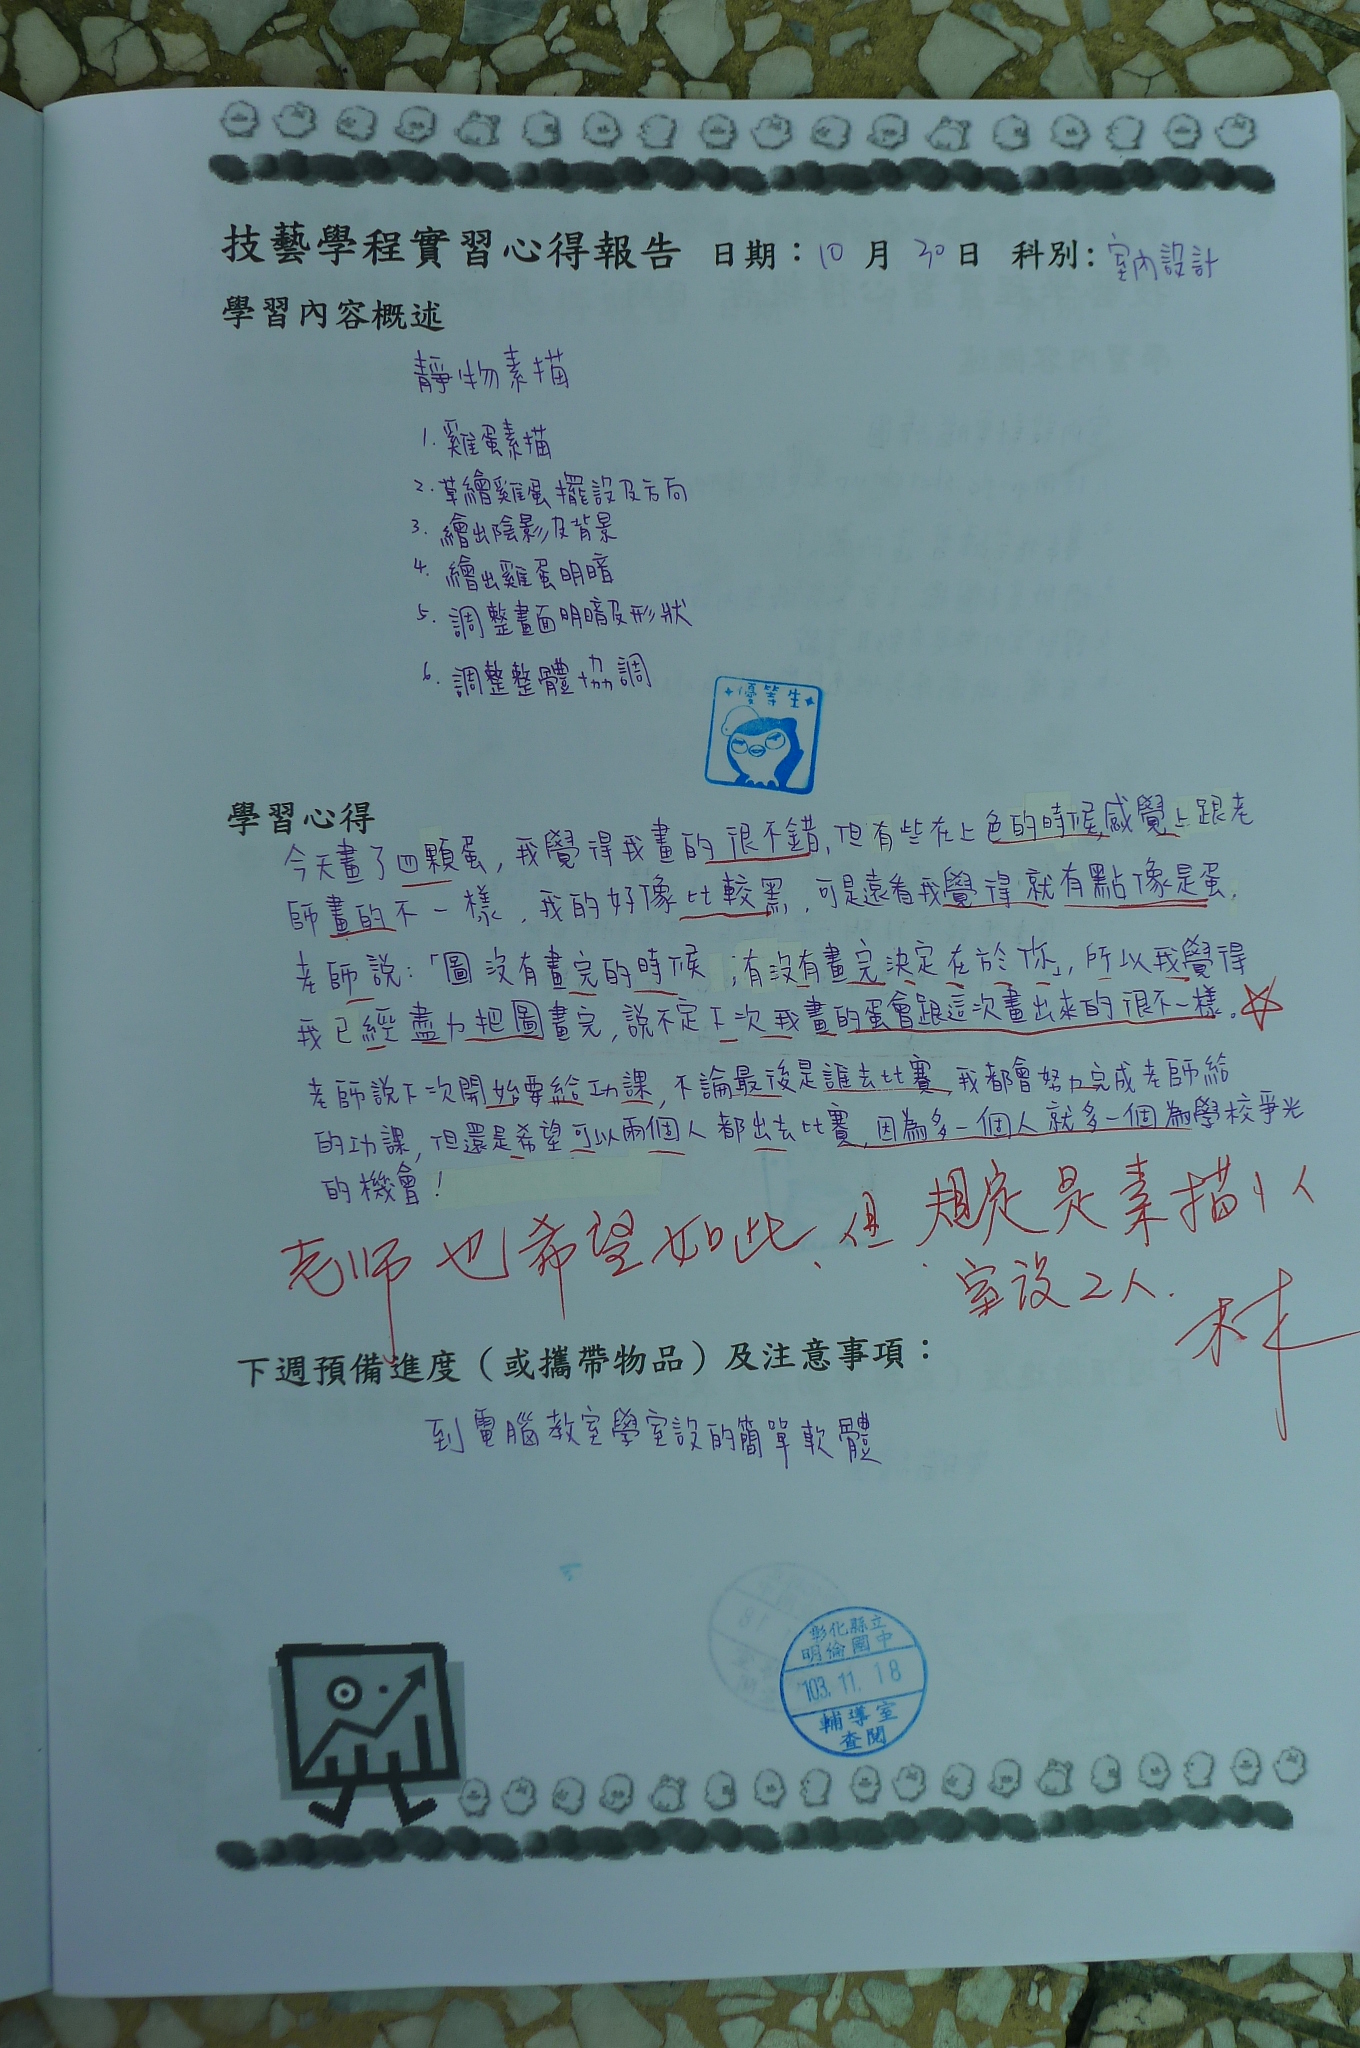 技藝學程實習心得報告 日期：10 月 30日 科別：室內設計
學習內容概述
靜物素描
1. 雞蛋素描
2. 草繪雞蛋擺設及方向
3. 繪出陰影及背景
4. 繪出雞蛋明暗
5. 調整畫面明暗及形狀
6. 調整整體協調
優等生
學習心得
今天畫了四顆蛋，我覺得我畫的很不錯，但有些在上色的時候感覺上跟老
師畫的不一樣，我的好像比較黑，可是遠看我覺得就有點像是蛋，
老師說：「圖沒有畫完的時候，有沒有畫完決定在於你」，所以我覺得
我已經盡力把圖畫完，說不定下次我畫的蛋會跟這次畫出來的很不一樣。
老師說下次開始要給功課，不論最後是誰去比賽，我都會努力完成老師給
的功課，但還是希望可以兩個人都出去比賽，因為多一個人就多一個為學校爭光
的機會！
老师也希望如此、但規定是素描1人
室設2人.
林
下週預備進度（或攜帶物品）及注意事項：
到電腦教室學室設的簡單軟體
彰化縣立
明倫國中
103.11.18
輔導室
查閱